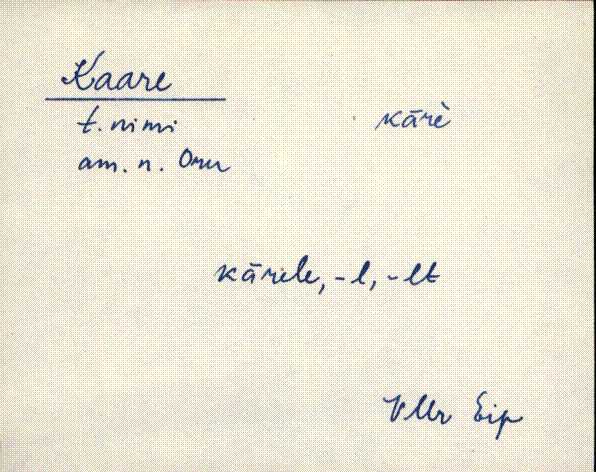 Kaare
t. nimi kārè
am. n. Oru
kārele, -l, -lt
Vllr Eip